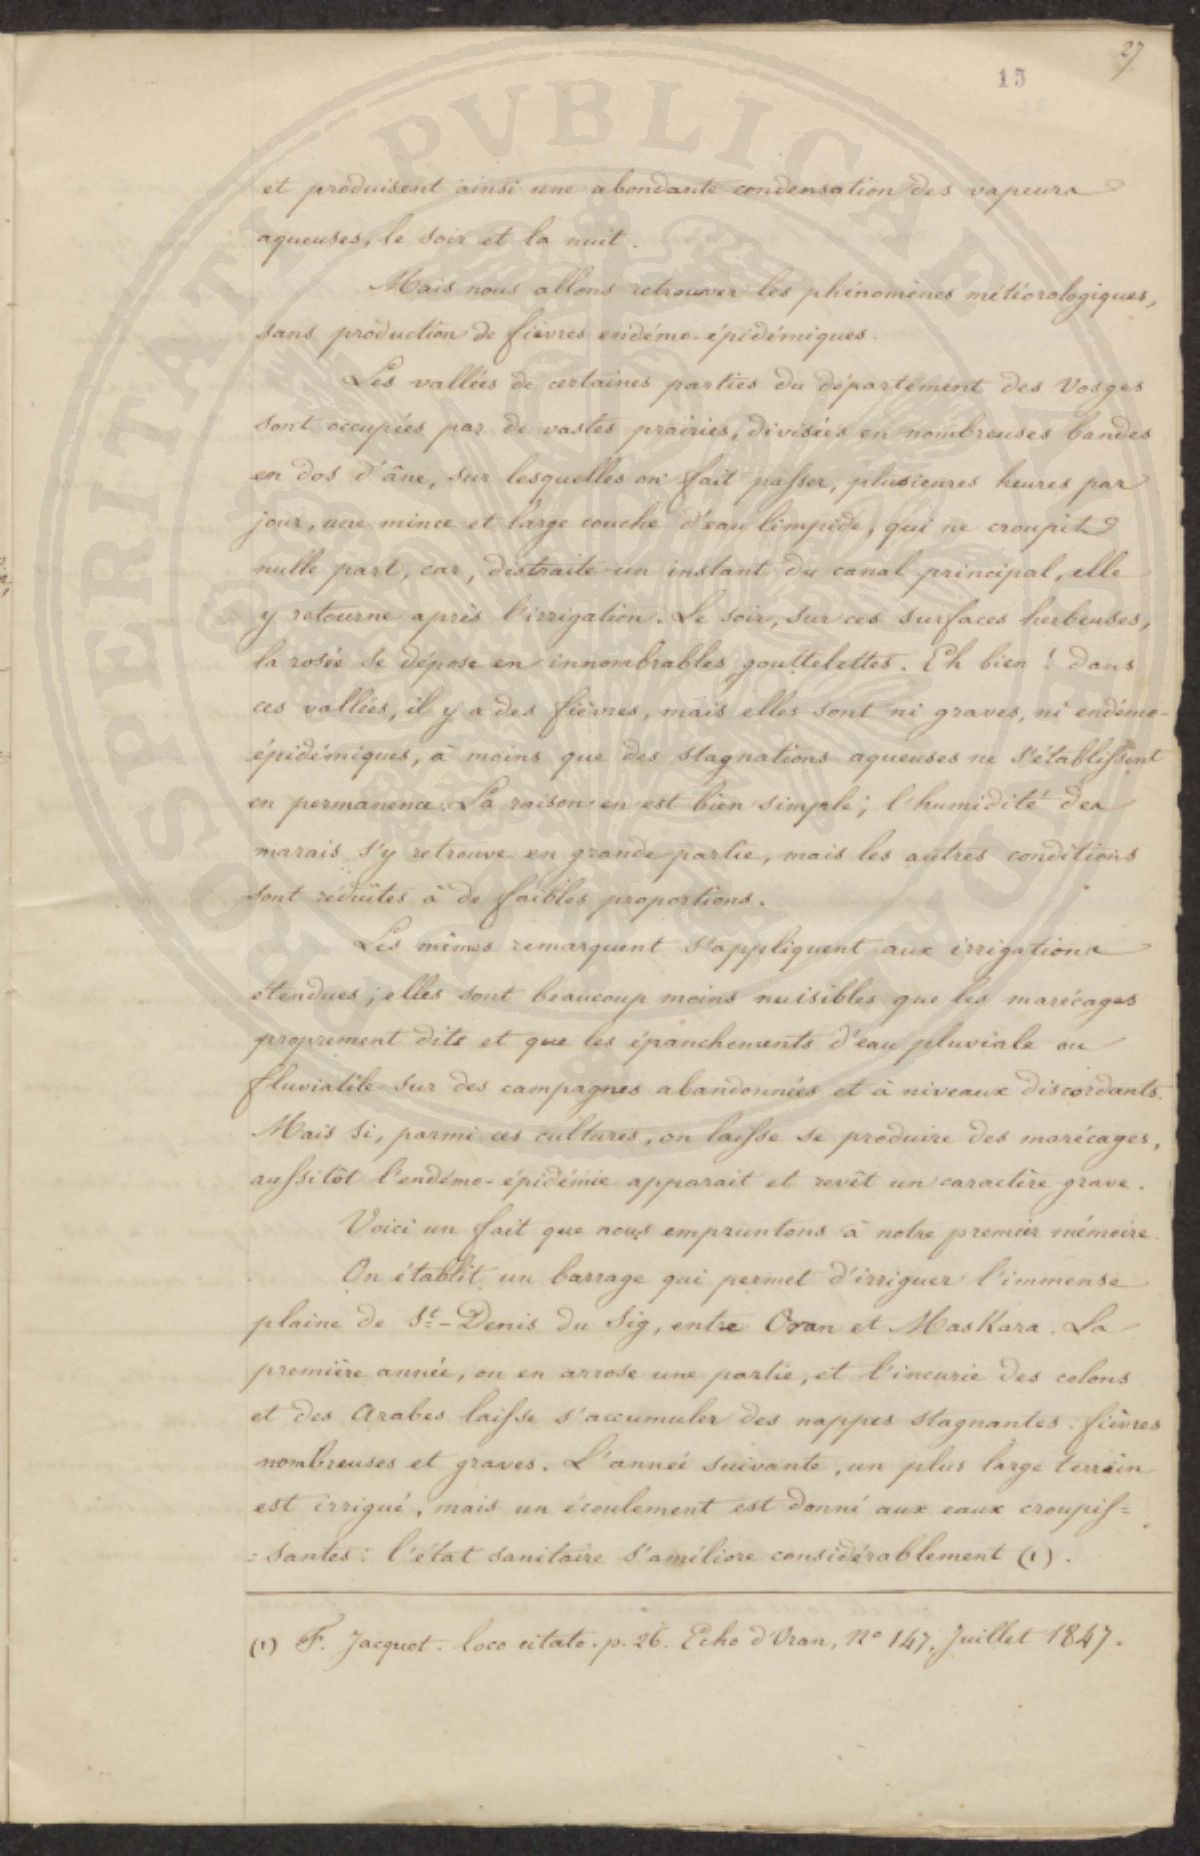 27
15
et produisent ainsi une abondante condensation des vapeurs
aqueuses, le soir et la nuit.
Mais nous allons retrouver les phénomènes météorologiques,
sans production de fièvres endémo-épidémiques.
Les vallées de certaines parties du département des Vosges
sont occupées par de vastes prairies, divisées en nombreuses bandes
en dos d'âne, sur lesquelles on fait passer, plusieures heures par
jour, une mince et large couche d'eau limpide, qui ne croupit
nulle part, car, distraite un instant du canal principal, elle
y retourne après l'irrigation. Le soir, sur ces surfaces herbeuses,
la rosée se dépose en innombrables gouttelettes. Eh bien ! dans
ces vallées, il y a des fièvres, mais elles sont ni graves, ni endémo-
épidémiques, à moins que des stagnations aqueuses ne s'établissent
en permanence. La raison en est bien simple ; l'humidité des
marais s'y retrouve en grande partie, mais les autres conditions
sont réduites à de faibles proportions.
Les mêmes remarquent s'appliquent aux irrigations
etendues ; elles sont beaucoup moins nuisibles que les marécages
proprement dits et que les épanchements d'eau pluviale ou
fluviatile sur des campagnes abandonnées et à niveaux discordants.
Mais si, parmi ces cultures, on laisse se produire des marécages,
aussitôt l'endémo-épidémie apparait et revêt un caractère grave.
Voici un fait que nous empruntons à notre premier mémoire.
On établit un barrage qui permet d'irriguer l'immense
plaine de St-Denis du Sig, entre Oran et Maskara. La
première année, on en arrose une partie, et l'incurie des colons
et des Arabes laisse s'accumuler des nappes stagnantes : fièvres
nombreuses et graves. L'année suivante, un plus large terrein
est irrigué, mais un écoulement est donné aux eaux croupis=
=santes : l'état sanitaire s'améliore considérablement (1).
(1) F. Jacquot. loco citato. p. 26. Echo d'Oran, No 147, Juillet 1847.
PROSPERITATI PUBLICAE